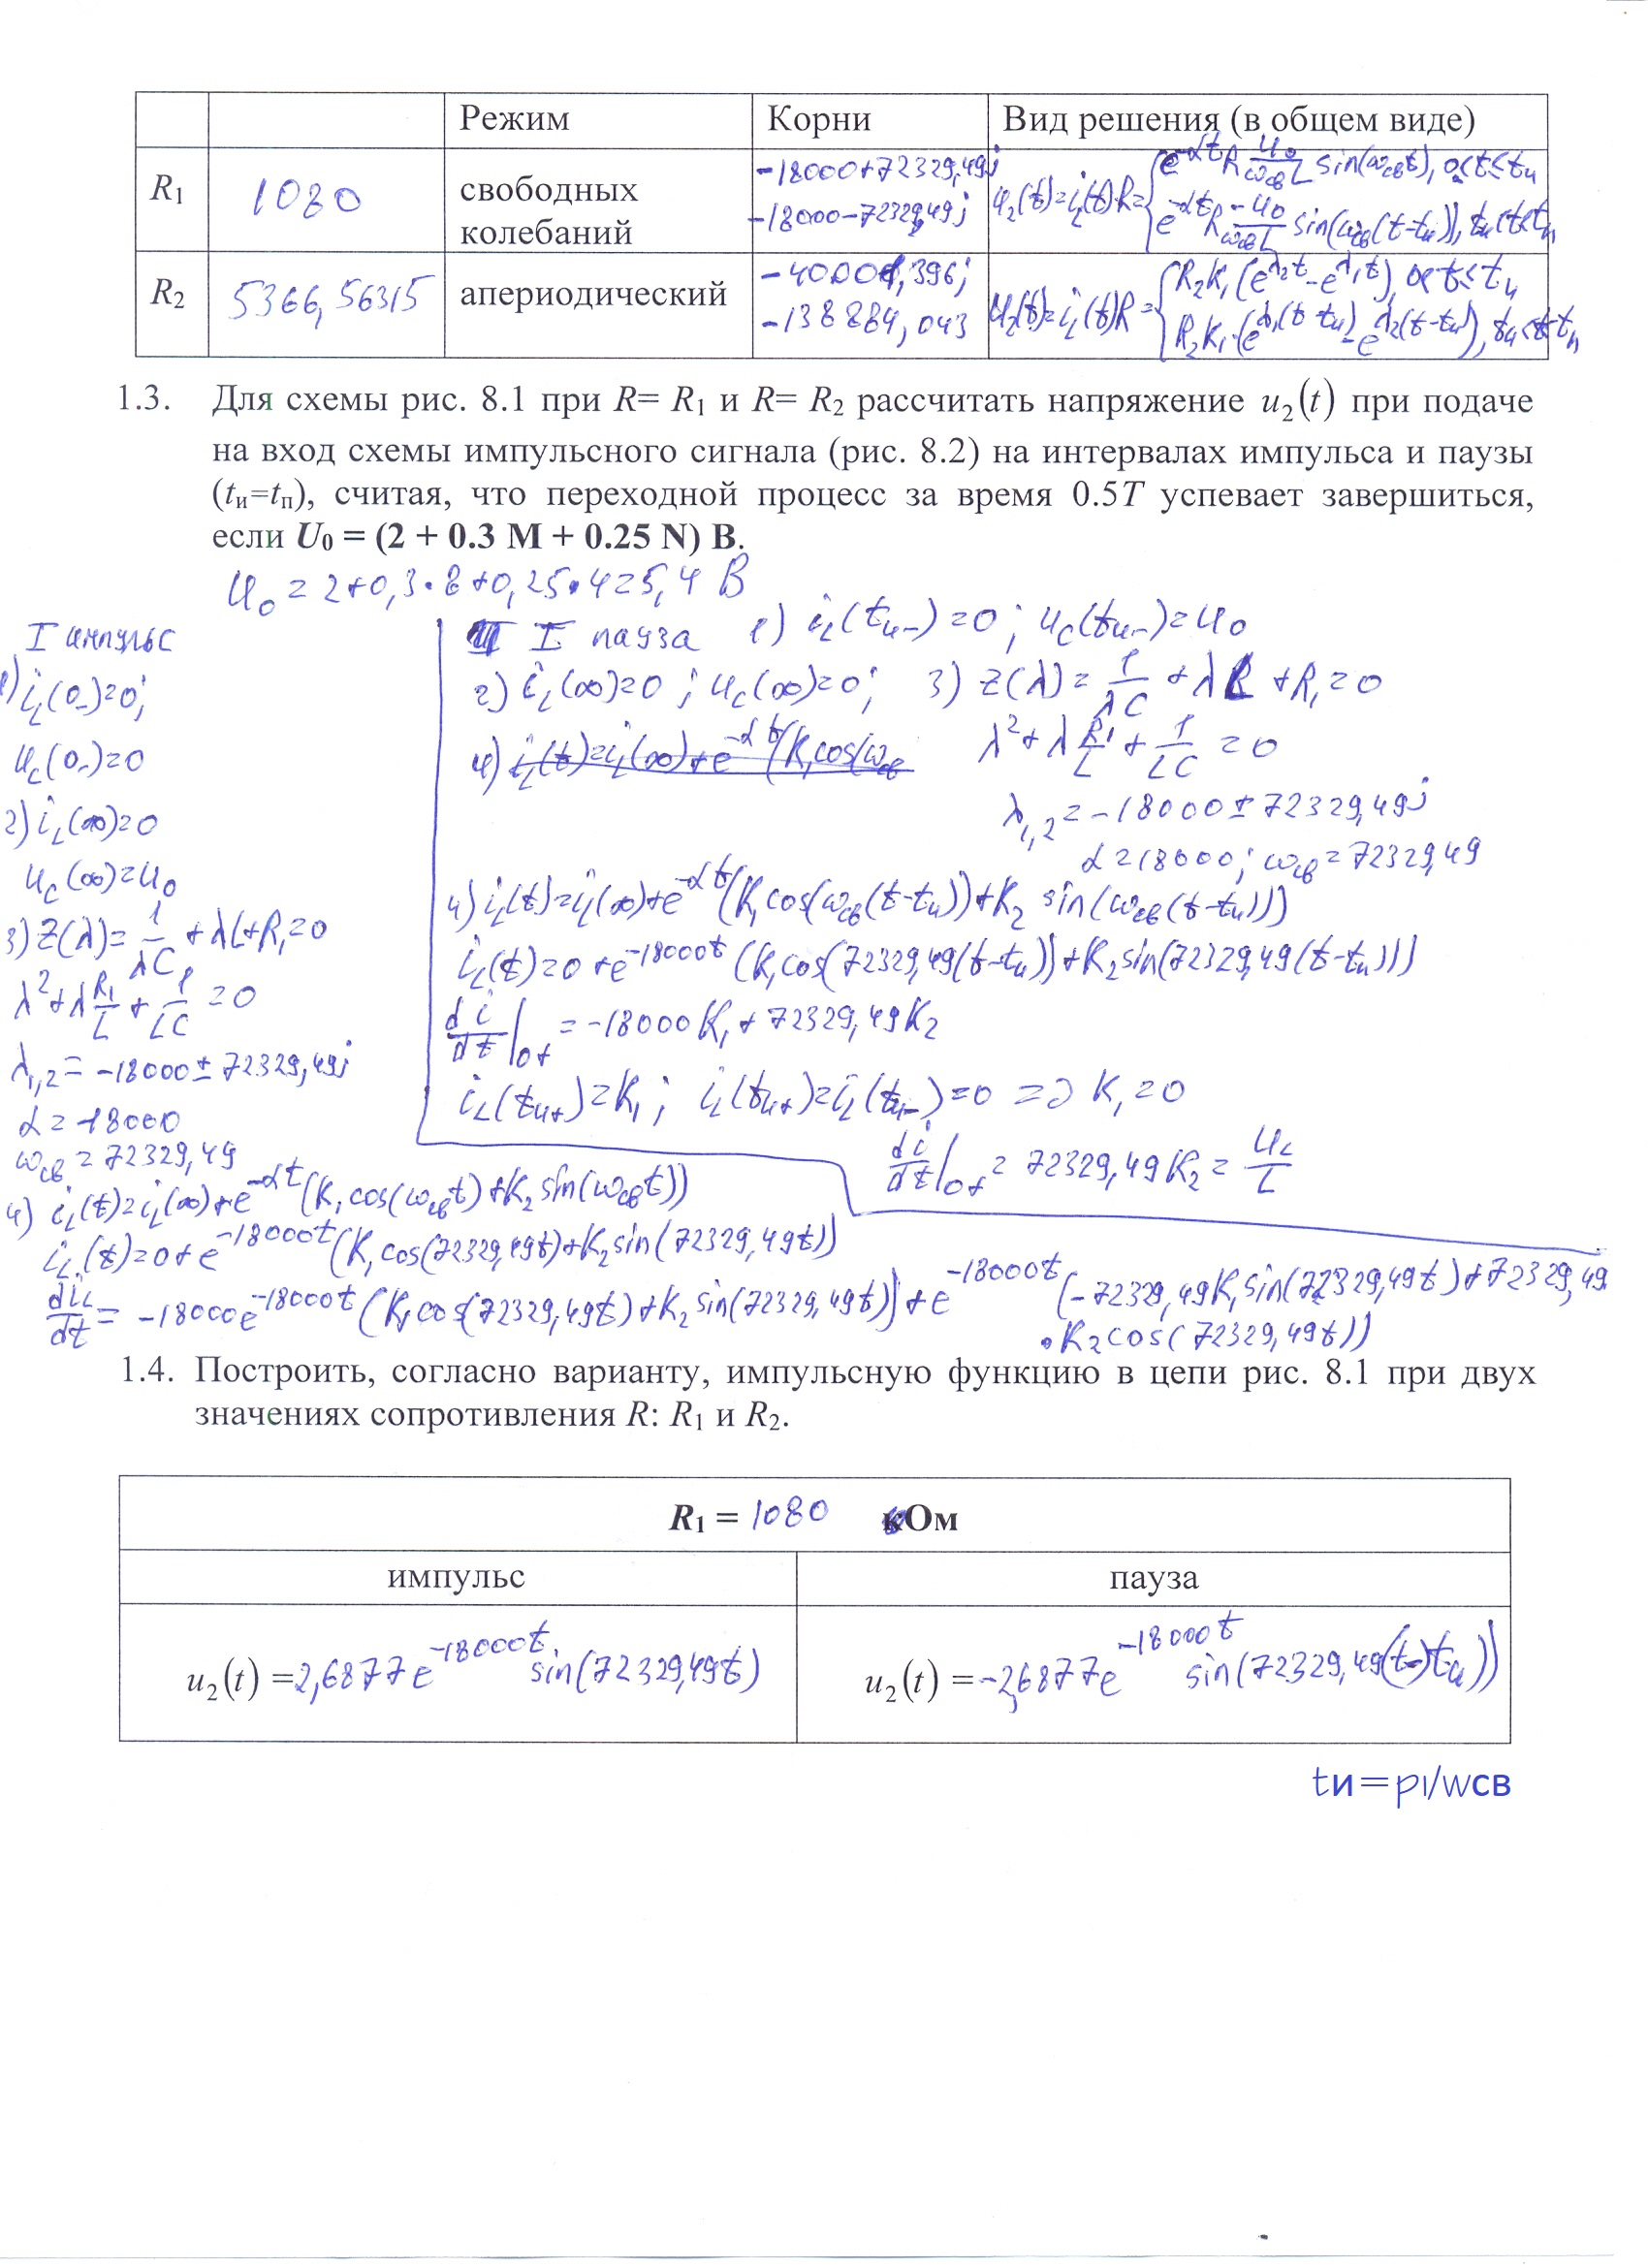 Режим Корни Вид решения (в общем виде)
R₁ 1080 свободных колебаний -18000+72329,49j -18000-72329,49j u₂(t)=i_L(t)·R={e^{-αt}R U₀/(ω_св L) sin(ω_св t), 0<t≤t_и
e^{-αt}R -U₀/(ω_св L) sin(ω_св(t-t_и)), t_и<t<t_п
R₂ 5366,56315 апериодический -40001,396; -138884,043 u₂(t)=i_L(t)R={R₂K₁(e^{λ₂t}-e^{λ₁t}), 0<t≤t_и
R₂K₁·(e^{λ₁(t-t_и)}-e^{λ₂(t-t_и)}), t_и<t<t_п
1.3. Для схемы рис. 8.1 при R= R₁ и R= R₂ рассчитать напряжение u₂(t) при подаче
на вход схемы импульсного сигнала (рис. 8.2) на интервалах импульса и паузы
(tи=tп), считая, что переходной процесс за время 0.5T успевает завершиться,
если U₀ = (2 + 0.3 M + 0.25 N) В.
U₀ = 2+0,3·8+0,25·4=5,4 В
I импульс
1) i_L(0₋)=0;
u_C(0₋)=0
2) i_L(∞)=0
u_C(∞)=U₀
3) Z(λ)=1/(λC)+λL+R₁=0
λ²+λR₁/L+1/(LC)=0
λ₁,₂=-18000±72329,49j
α=18000
ω_св=72329,49
4) i_L(t)=i_L(∞)+e^{-αt}(K₁cos(ω_св t)+K₂sin(ω_св t))
i_L(t)=0+e^{-18000t}(K₁cos(72329,49t)+K₂sin(72329,49t))
di_L/dt=-18000e^{-18000t}(K₁cos(72329,49t)+K₂sin(72329,49t))+e^{-18000t}(-72329,49K₁sin(72329,49t)+72329,49
·K₂cos(72329,49t))
I пауза 1) i_L(t_и₋)=0; u_C(t_и₋)=U₀
2) i_L(∞)=0; u_C(∞)=0; 3) Z(λ)=1/(λC)+λL+R₁=0
λ²+λR₁/L+1/(LC)=0
4) i_L(t)=i_L(∞)+e^{-αt}(K₁cos(ω_св
λ₁,₂=-18000±72329,49j
α=18000; ω_св=72329,49
4) i_L(t)=i_L(∞)+e^{-αt}(K₁cos(ω_св(t-t_и))+K₂ sin(ω_св(t-t_и)))
i_L(t)=0+e^{-18000t}(K₁cos(72329,49(t-t_и))+K₂sin(72329,49(t-t_и)))
di/dt|₀₊=-18000K₁+72329,49K₂
i_L(t_и₊)=K₁; i_L(t_и₊)=i_L(t_и₋)=0 => K₁=0
di/dt|₀₊=72329,49K₂=U_L/L
1.4. Построить, согласно варианту, импульсную функцию в цепи рис. 8.1 при двух
значениях сопротивления R: R₁ и R₂.
R₁ = 1080 кОм
импульс пауза
u₂(t) =2,6877e^{-18000t} sin(72329,49t) u₂(t) =-2,6877e^{-18000t} sin(72329,49(t-tи))
tи=pi/wсв